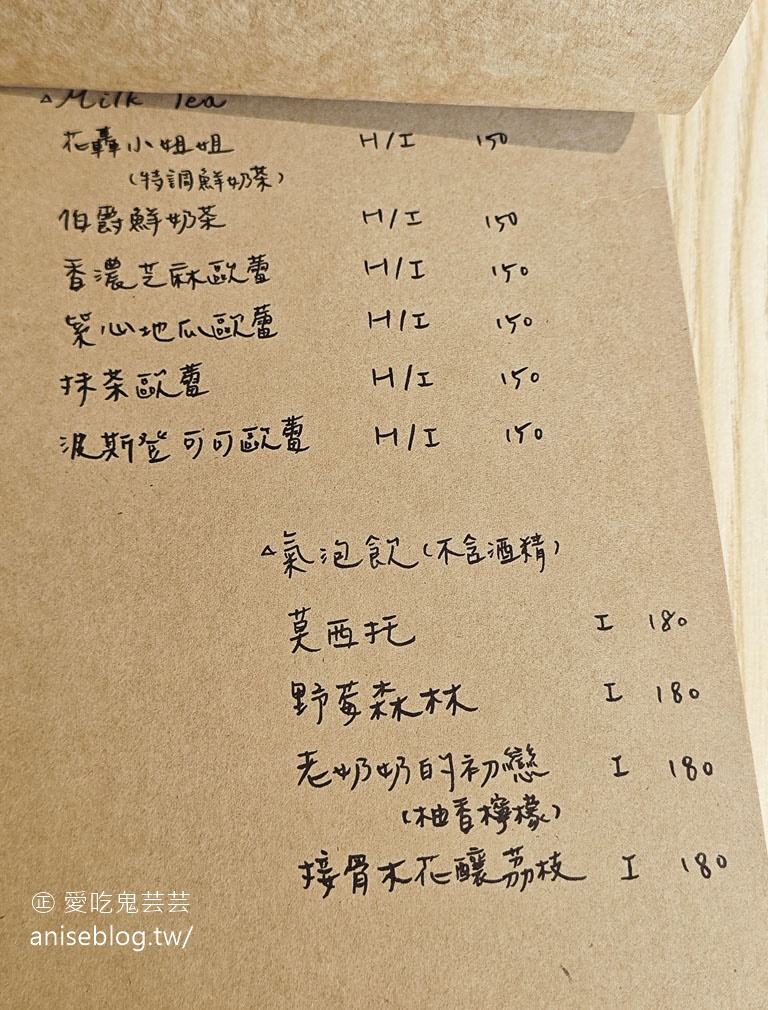 △Milk Tea
花轟小姐姐 H/I 150
(特調鮮奶茶)
伯爵鮮奶茶 H/I 150
香濃芝麻歐蕾 H/I 150
紫心地瓜歐蕾 H/I 150
抹茶歐蕾 H/I 150
波斯登可可歐蕾 H/I 150
△氣泡飲(不含酒精)
莫西托 I 180
野莓森林 I 180
老奶奶的初戀 I 180
(柚香檸檬)
接骨木花釀荔枝 I 180
㊣ 愛吃鬼芸芸
aniseblog.tw/